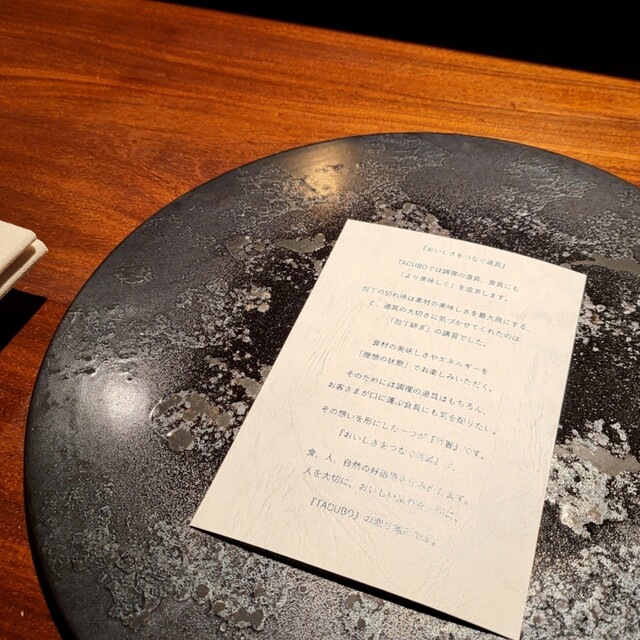 『おいしさをつなぐ道具』
TACUBOでは調理の道具、食具にも
「より美味しく」を追求します。
包丁の切れ味は素材の美味しさを最大限にする、
と、道具の大切さに気づかせてくれたのは
「包丁研ぎ」の講習でした。
食材の美味しさやエネルギーを
「理想の状態」でお楽しみいただく。
そのためには調理の道具はもちろん、
お客さまが口に運ぶ食具にも気を配りたい。
その想いを形にした一つが『竹箸』です。
『おいしさをつなぐ道具』は、
食、人、自然の好循環を生み出します。
人を大切に、おいしい
『TACUBO』の